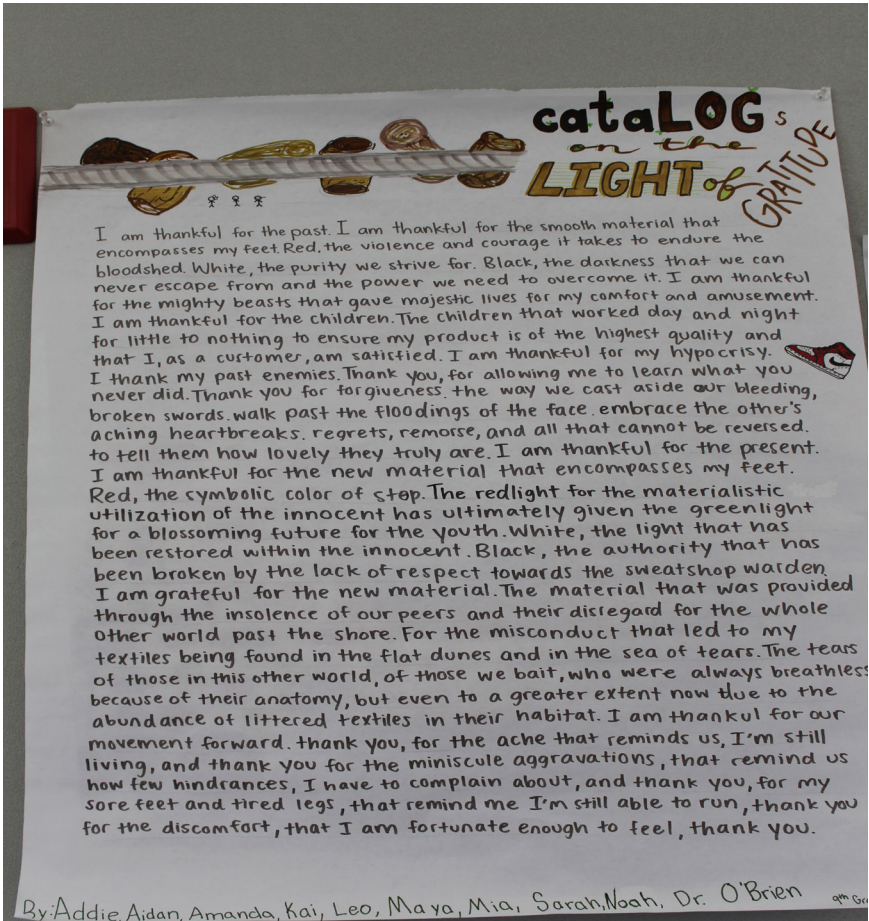 cataLOGs
on the
LIGHT of GRATITUDE
I am thankful for the past. I am thankful for the smooth material that
encompasses my feet. Red, the violence and courage it takes to endure the
bloodshed. White, the purity we strive for. Black, the darkness that we can
never escape from and the power we need to overcome it. I am thankful
for the mighty beasts that gave majestic lives for my comfort and amusement.
I am thankful for the children. The children that worked day and night
for little to nothing to ensure my product is of the highest quality and
that I, as a customer, am satisfied. I am thankful for my hypocrisy.
I thank my past enemies. Thank you, for allowing me to learn what you
never did. Thank you for forgiveness. the way we cast aside our bleeding,
broken swords. walk past the floodings of the face. embrace the other's
aching heartbreaks. regrets, remorse, and all that cannot be reversed.
to tell them how lovely they truly are. I am thankful for the present.
I am thankful for the new material that encompasses my feet.
Red, the symbolic color of stop. The redlight for the materialistic
utilization of the innocent has ultimately given the greenlight
for a blossoming future for the youth. White, the light that has
been restored within the innocent. Black, the authority that has
been broken by the lack of respect towards the sweatshop warden.
I am grateful for the new material. The material that was provided
through the insolence of our peers and their disregard for the whole
other world past the shore. For the misconduct that led to my
textiles being found in the flat dunes and in the sea of tears. The tears
of those in this other world, of those we bait, who were always breathless
because of their anatomy, but even to a greater extent now due to the
abundance of littered textiles in their habitat. I am thankul for our
movement forward. thank you, for the ache that reminds us, I'm still
living, and thank you for the miniscule aggravations, that remind us
how few hindrances, I have to complain about, and thank you, for my
sore feet and tired legs, that remind me I'm still able to run, thank you
for the discomfort, that I am fortunate enough to feel, thank you.
By: Addie, Aidan, Amanda, Kai, Leo, Maya, Mia, Sarah, Noah, Dr. O'Brien 9th